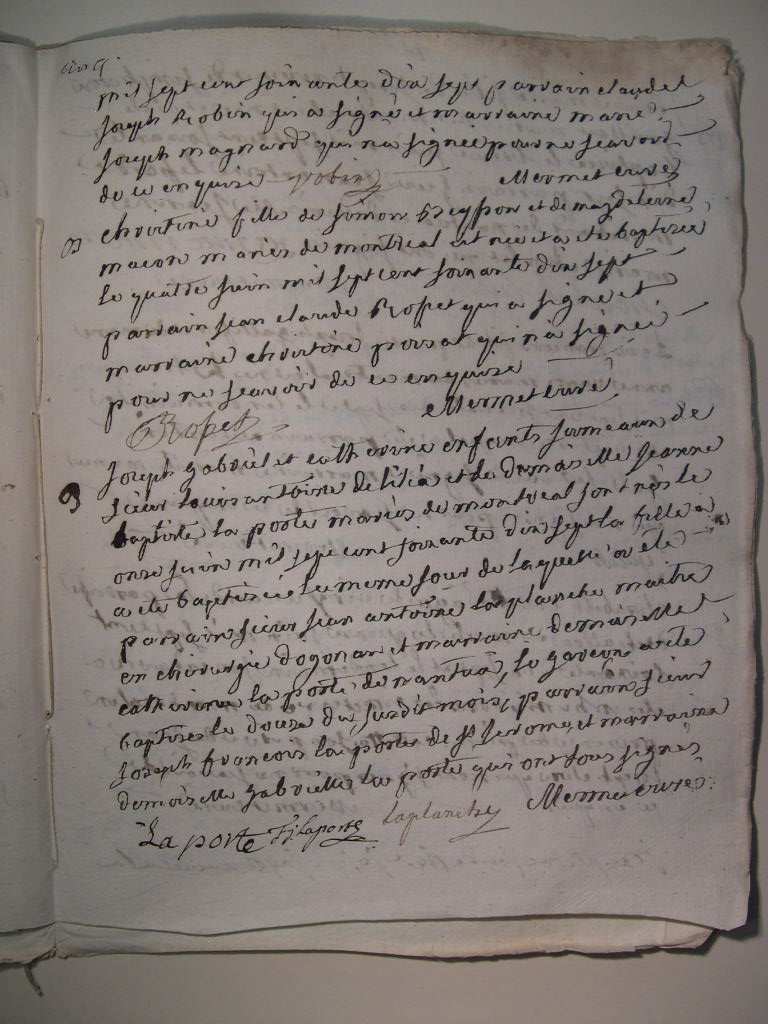 mil sept cent soixante dix sept parrain claude
joseph Robin qui a signé et marraine marie
joseph magnard qui n'a signée pour ne scavoir
de ce enquise robin Mermet curé
B christine fille de simon et de magdelaine
macon mariés de montreal est née et a eté baptisée
le quatre juin mil sept cent soixante dix sept
parrain jean claude Ropet qui a signé et
marraine christine qui n'a signée
pour ne scavoir de ce enquise
Mermet curé
Ropet
joseph gabriel et catherine enfents jumeaux de
B sieur louis antoine de lilia et de demoiselle jeanne
baptiste la porte mariés de montreal sont nés le
onze juin mil sept cent soixante dix sept la fille a
a eté baptisée le meme jour de laquelle a été
parrain sieur jean antoine laplanche maitre
en chirurgie d'ogonax et marraine demoiselle
catherine la porte de nantua, le garcon a eté
baptisés le douze du susdit mois, parrain sieur
joseph francois la porte de st jerome, et marraine
demoiselle gabrielle la porte qui ont tous signés
La porte laporte laplanche Mermet curé